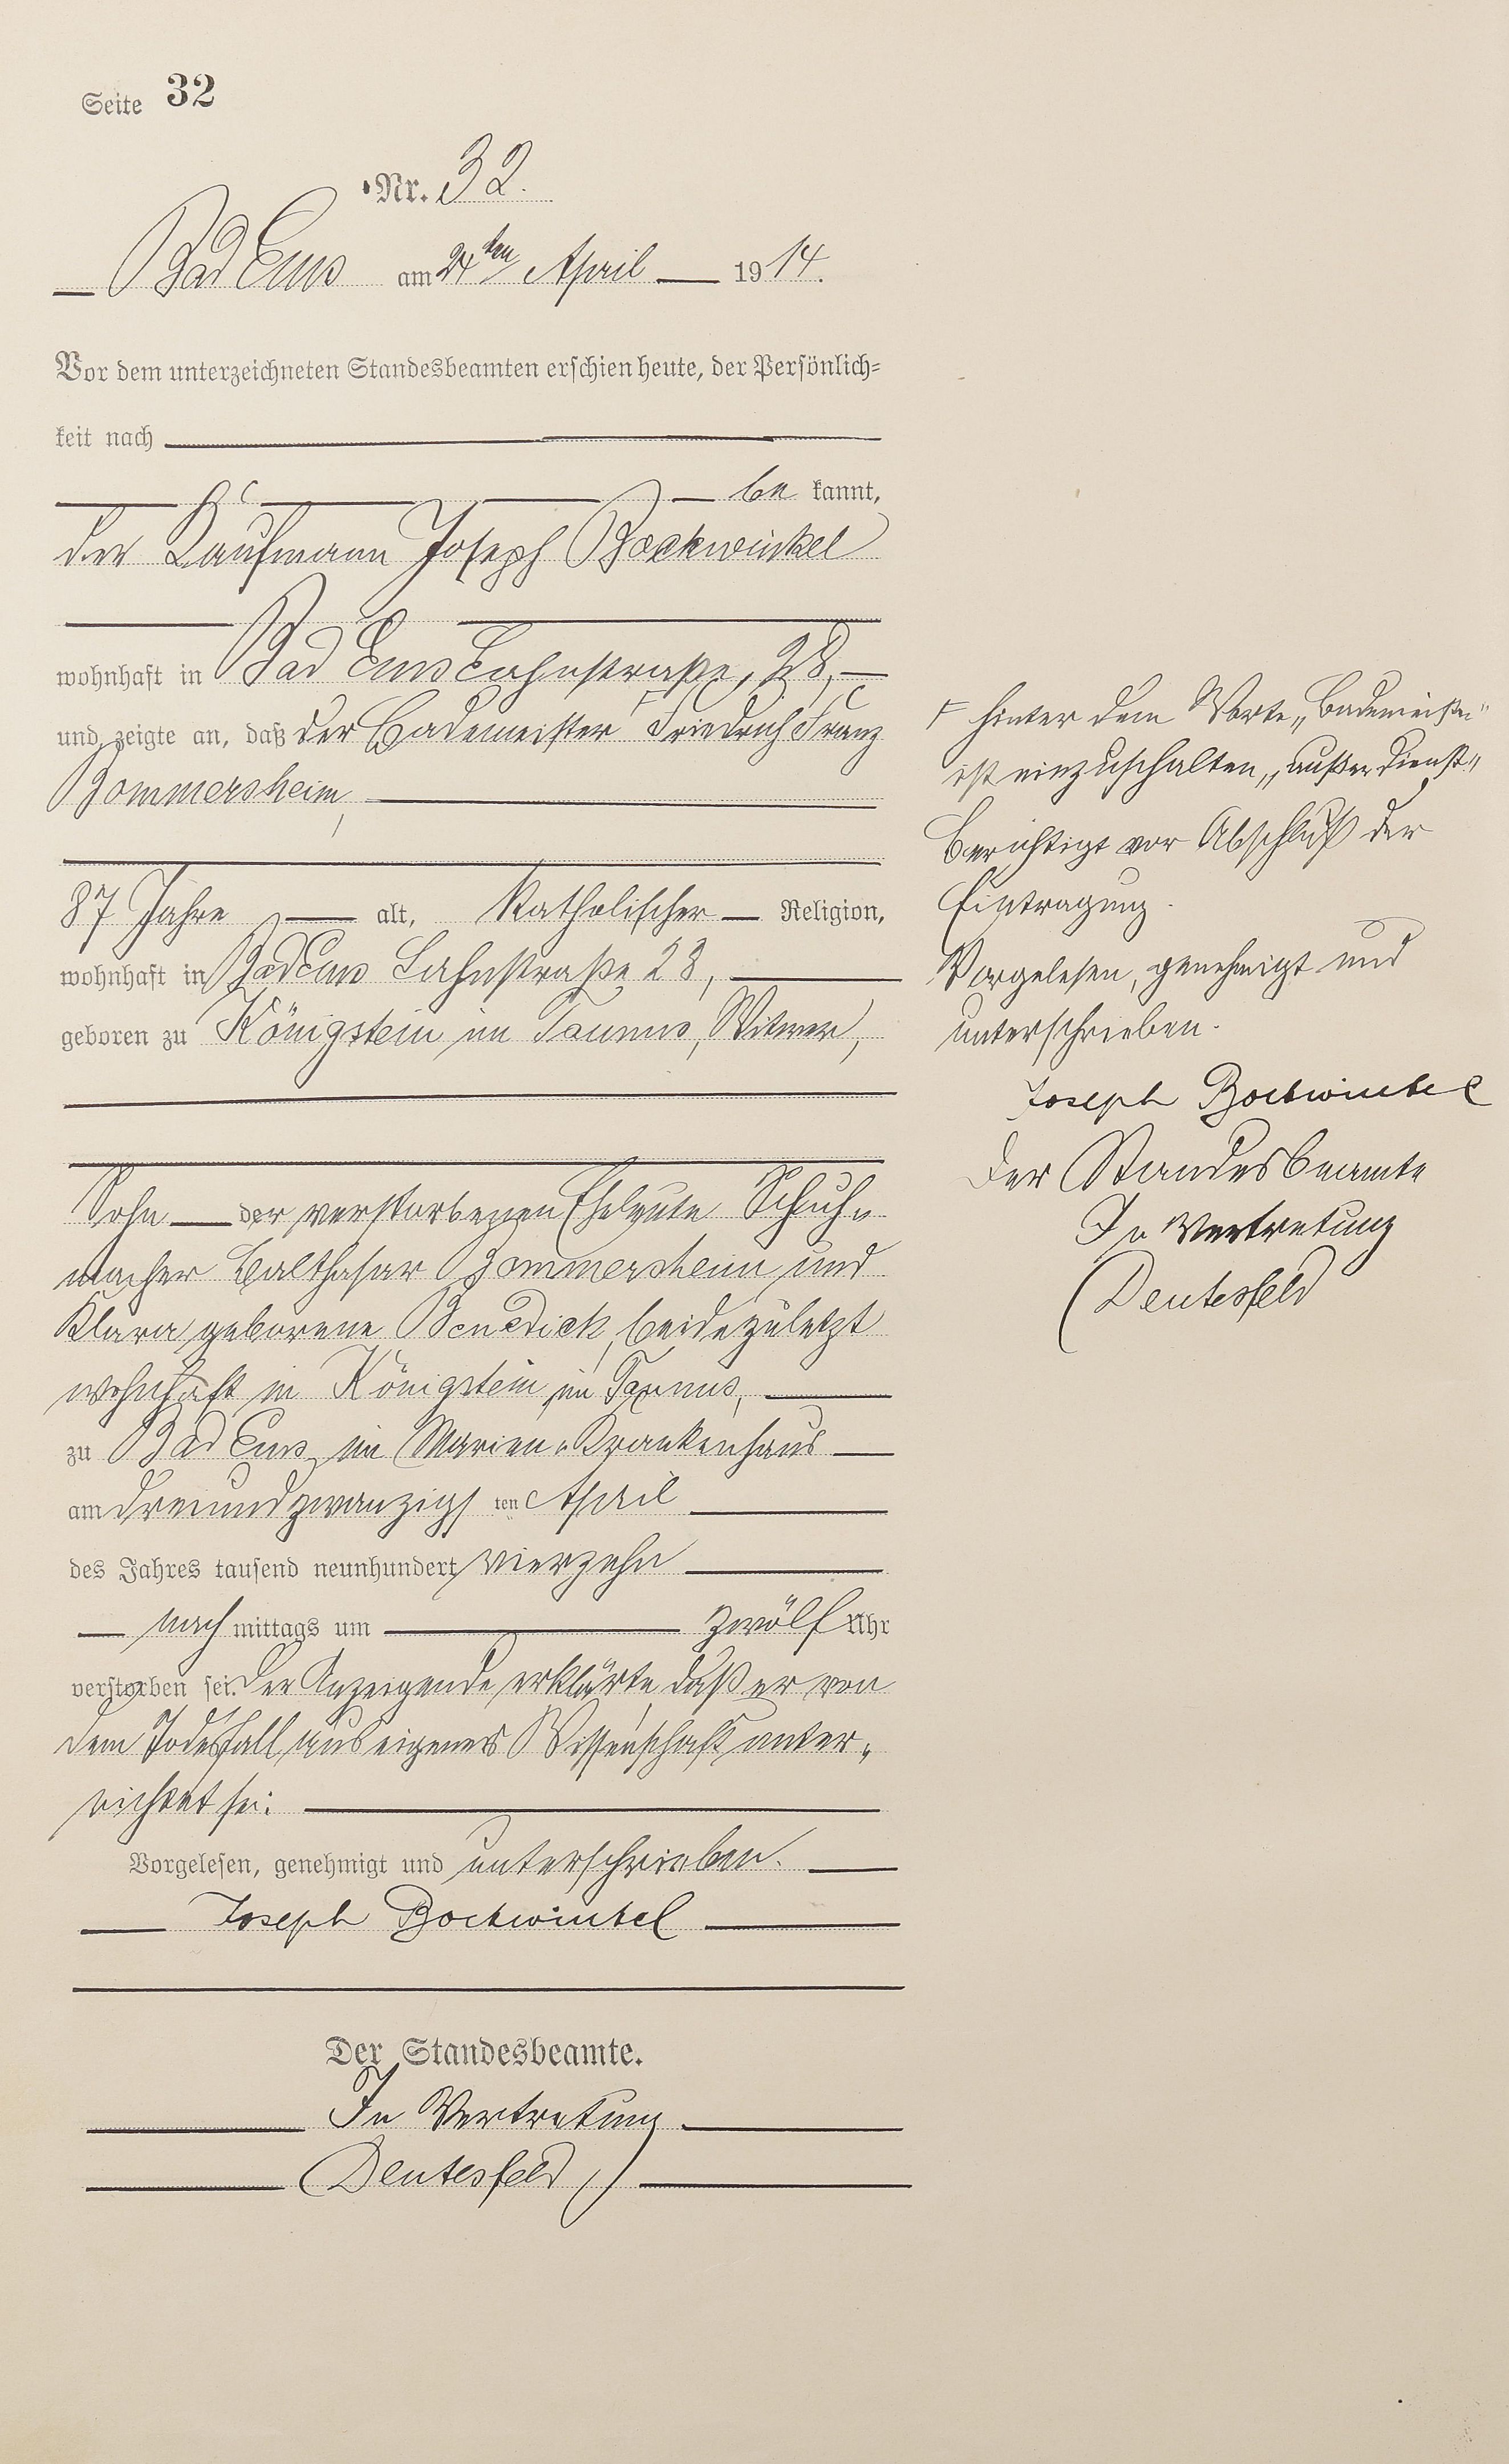 Seite 32
Nr. 32.
Bad Ems am 24ten April 1914.
Vor dem unterzeichneten Standesbeamten erschien heute, der Persönlich-
keit nach
be kannt,
der Kaufmann Joseph Bockwinkel
wohnhaft in Bad Ems Lahnstraße, 28,
und zeigte an, daß der Bademeister Friedrich Franz
Bommersheim,
87 Jahre alt, Katholischer Religion,
wohnhaft in Bad Ems Lahnstraße 28,
geboren zu Königstein im Taunus, Witwer,
Sohn der verstorbenen Eheleute Schuh-
macher Balthasar Bommersheim und
Klara geborene Benedick, beide zuletzt
wohnhaft in Königstein im Taunus,
zu Bad Ems im Marien-Krankenhaus
am dreiundzwanzigs ten April
des Jahres tausend neunhundert vierzehn
nach mittags um zwölf Uhr
verstorben sei. Der Anzeigende erklärte, daß er von
dem Todesfall aus eigener Wissenschaft unter-
richtet sei.
Vorgelesen, genehmigt und unterschrieben.
Joseph Bockwinkel
Der Standesbeamte.
In Vertretung
Deutesfeld
F hinter dem Worte „Bademeister"
ist einzuschalten „außer Dienst"
Berichtigt vor Abschluß der
Eintragung.
Vorgelesen, genehmigt und
unterschrieben.
Joseph Bockwinkel
Der Standesbeamte
In Vertretung
Deutesfeld